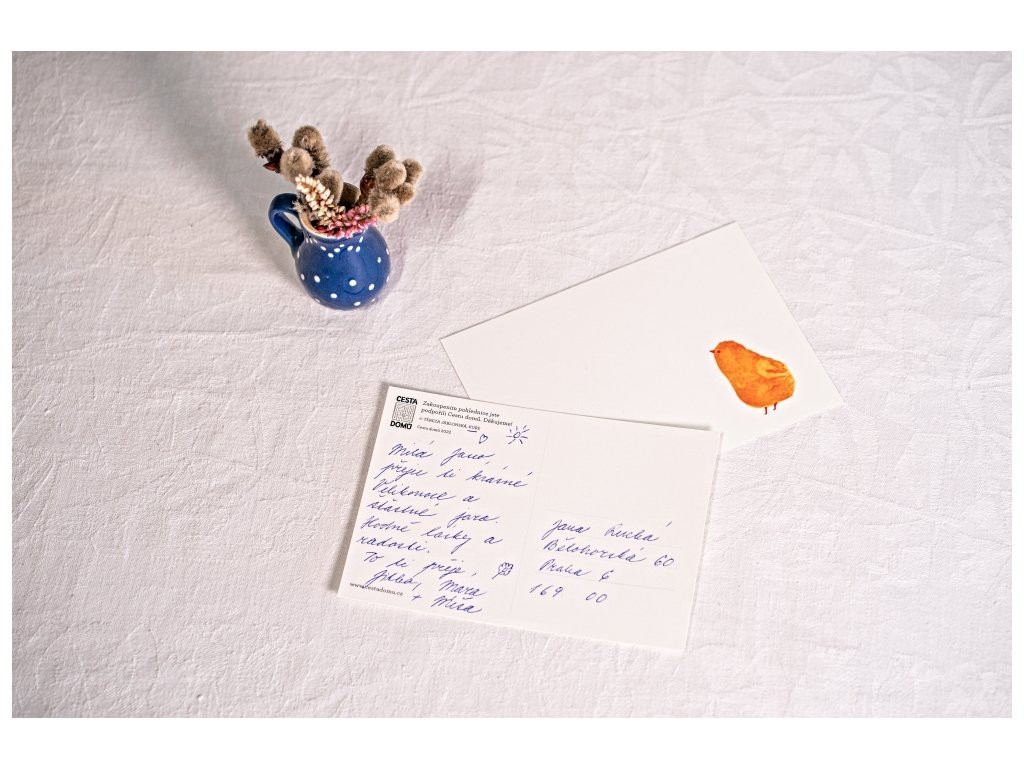 CESTA
DOMŮ
Zakoupením pohlednice jste
podpořili Cestu domů. Děkujeme!
© TEREZA JABLONSKÁ,
Cesta domů 2022
Milá Jano,
přeju ti krásné
Velikonoce a
šťastné jaro.
Hodně lásky a
radosti.
To ti přeje,
Jitka, Mara
+ Míša
www.cestadomu.cz
Jana Suchá
Bělohorská 60
Praha 6
169 00